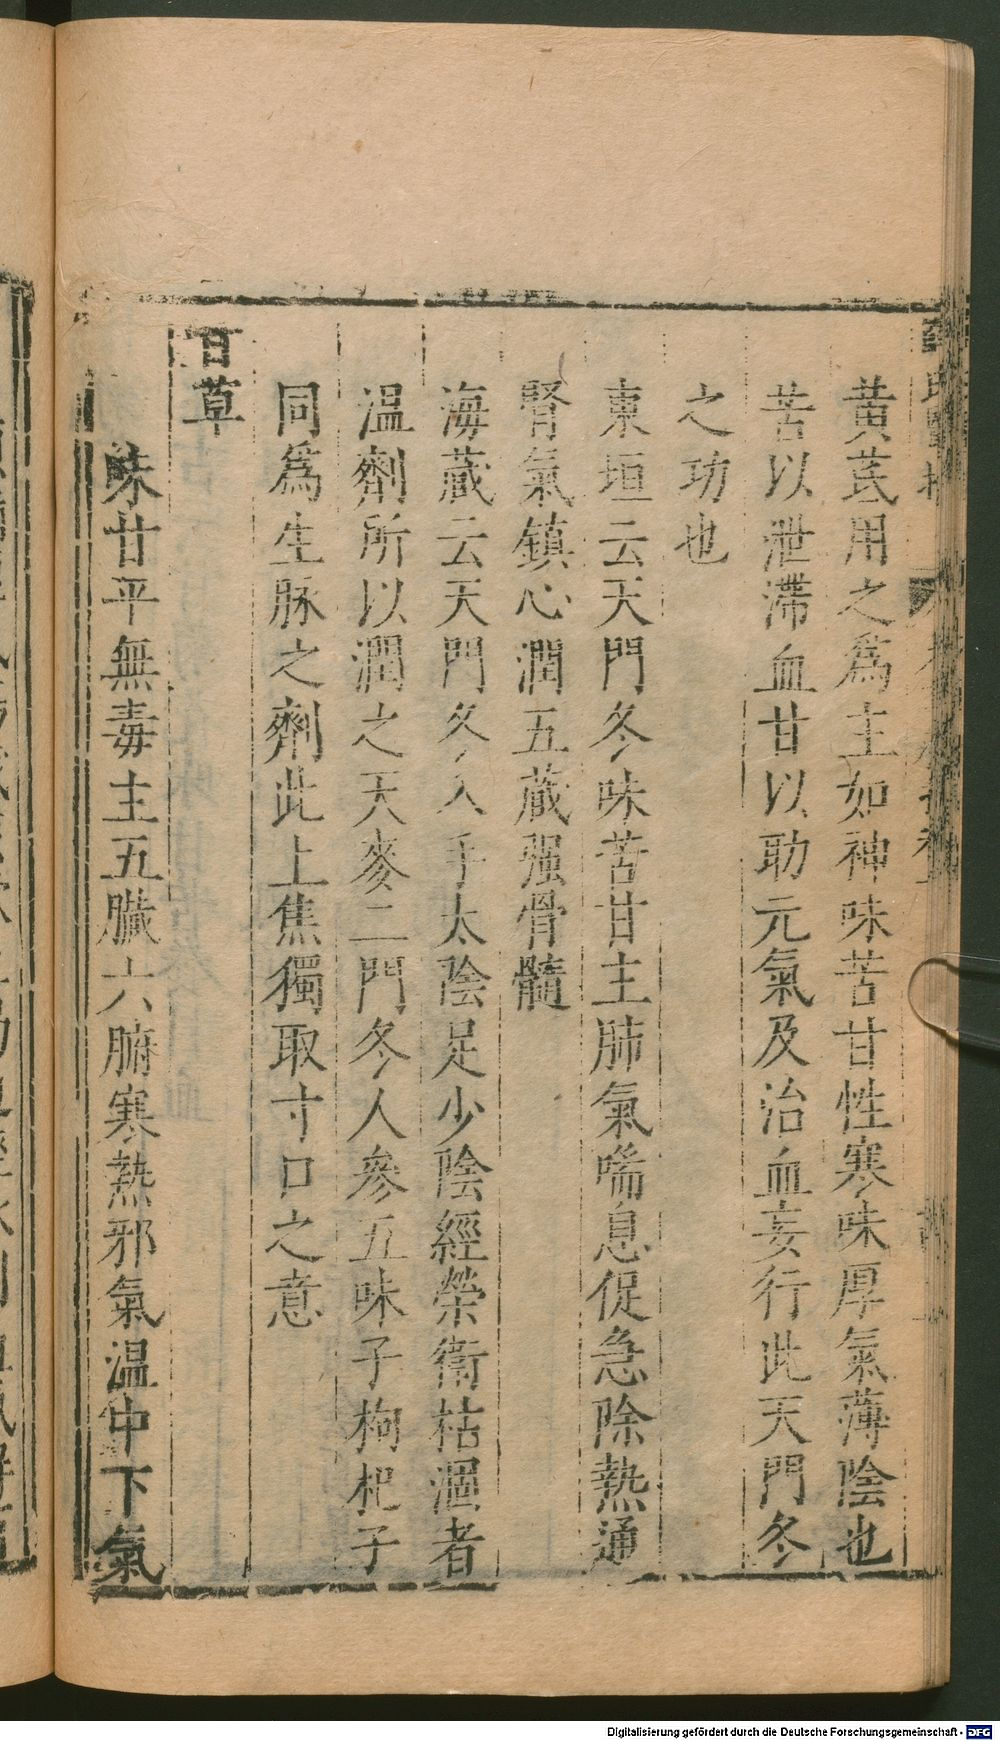 黄芪用之爲主如神味苦甘性寒味厚氣薄陰也
苦以泄滯血甘以助元氣及治血妄行此天門冬
之功也
東垣云天門冬味苦甘主肺氣喘息促急除熱通
腎氣鎮心潤五藏强骨髓
海藏云天門冬入手太陰足少陰經榮衛枯涸者
温劑所以潤之天麥二門冬人參五味子枸杞子
同爲生脉之劑此上焦獨取寸口之意
甘草
味甘平無毒主五臓六腑寒熱邪氣温中下氣
Digitalisierung gefördert durch die Deutsche Forschungsgemeinschaft - DFG